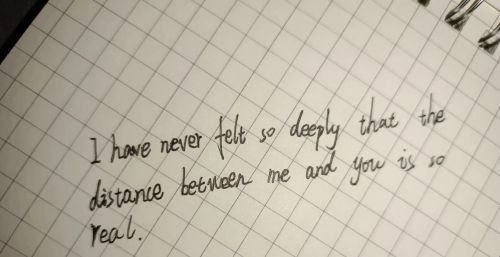 I have never felt so deeply that the
distance between me and you is so
real.